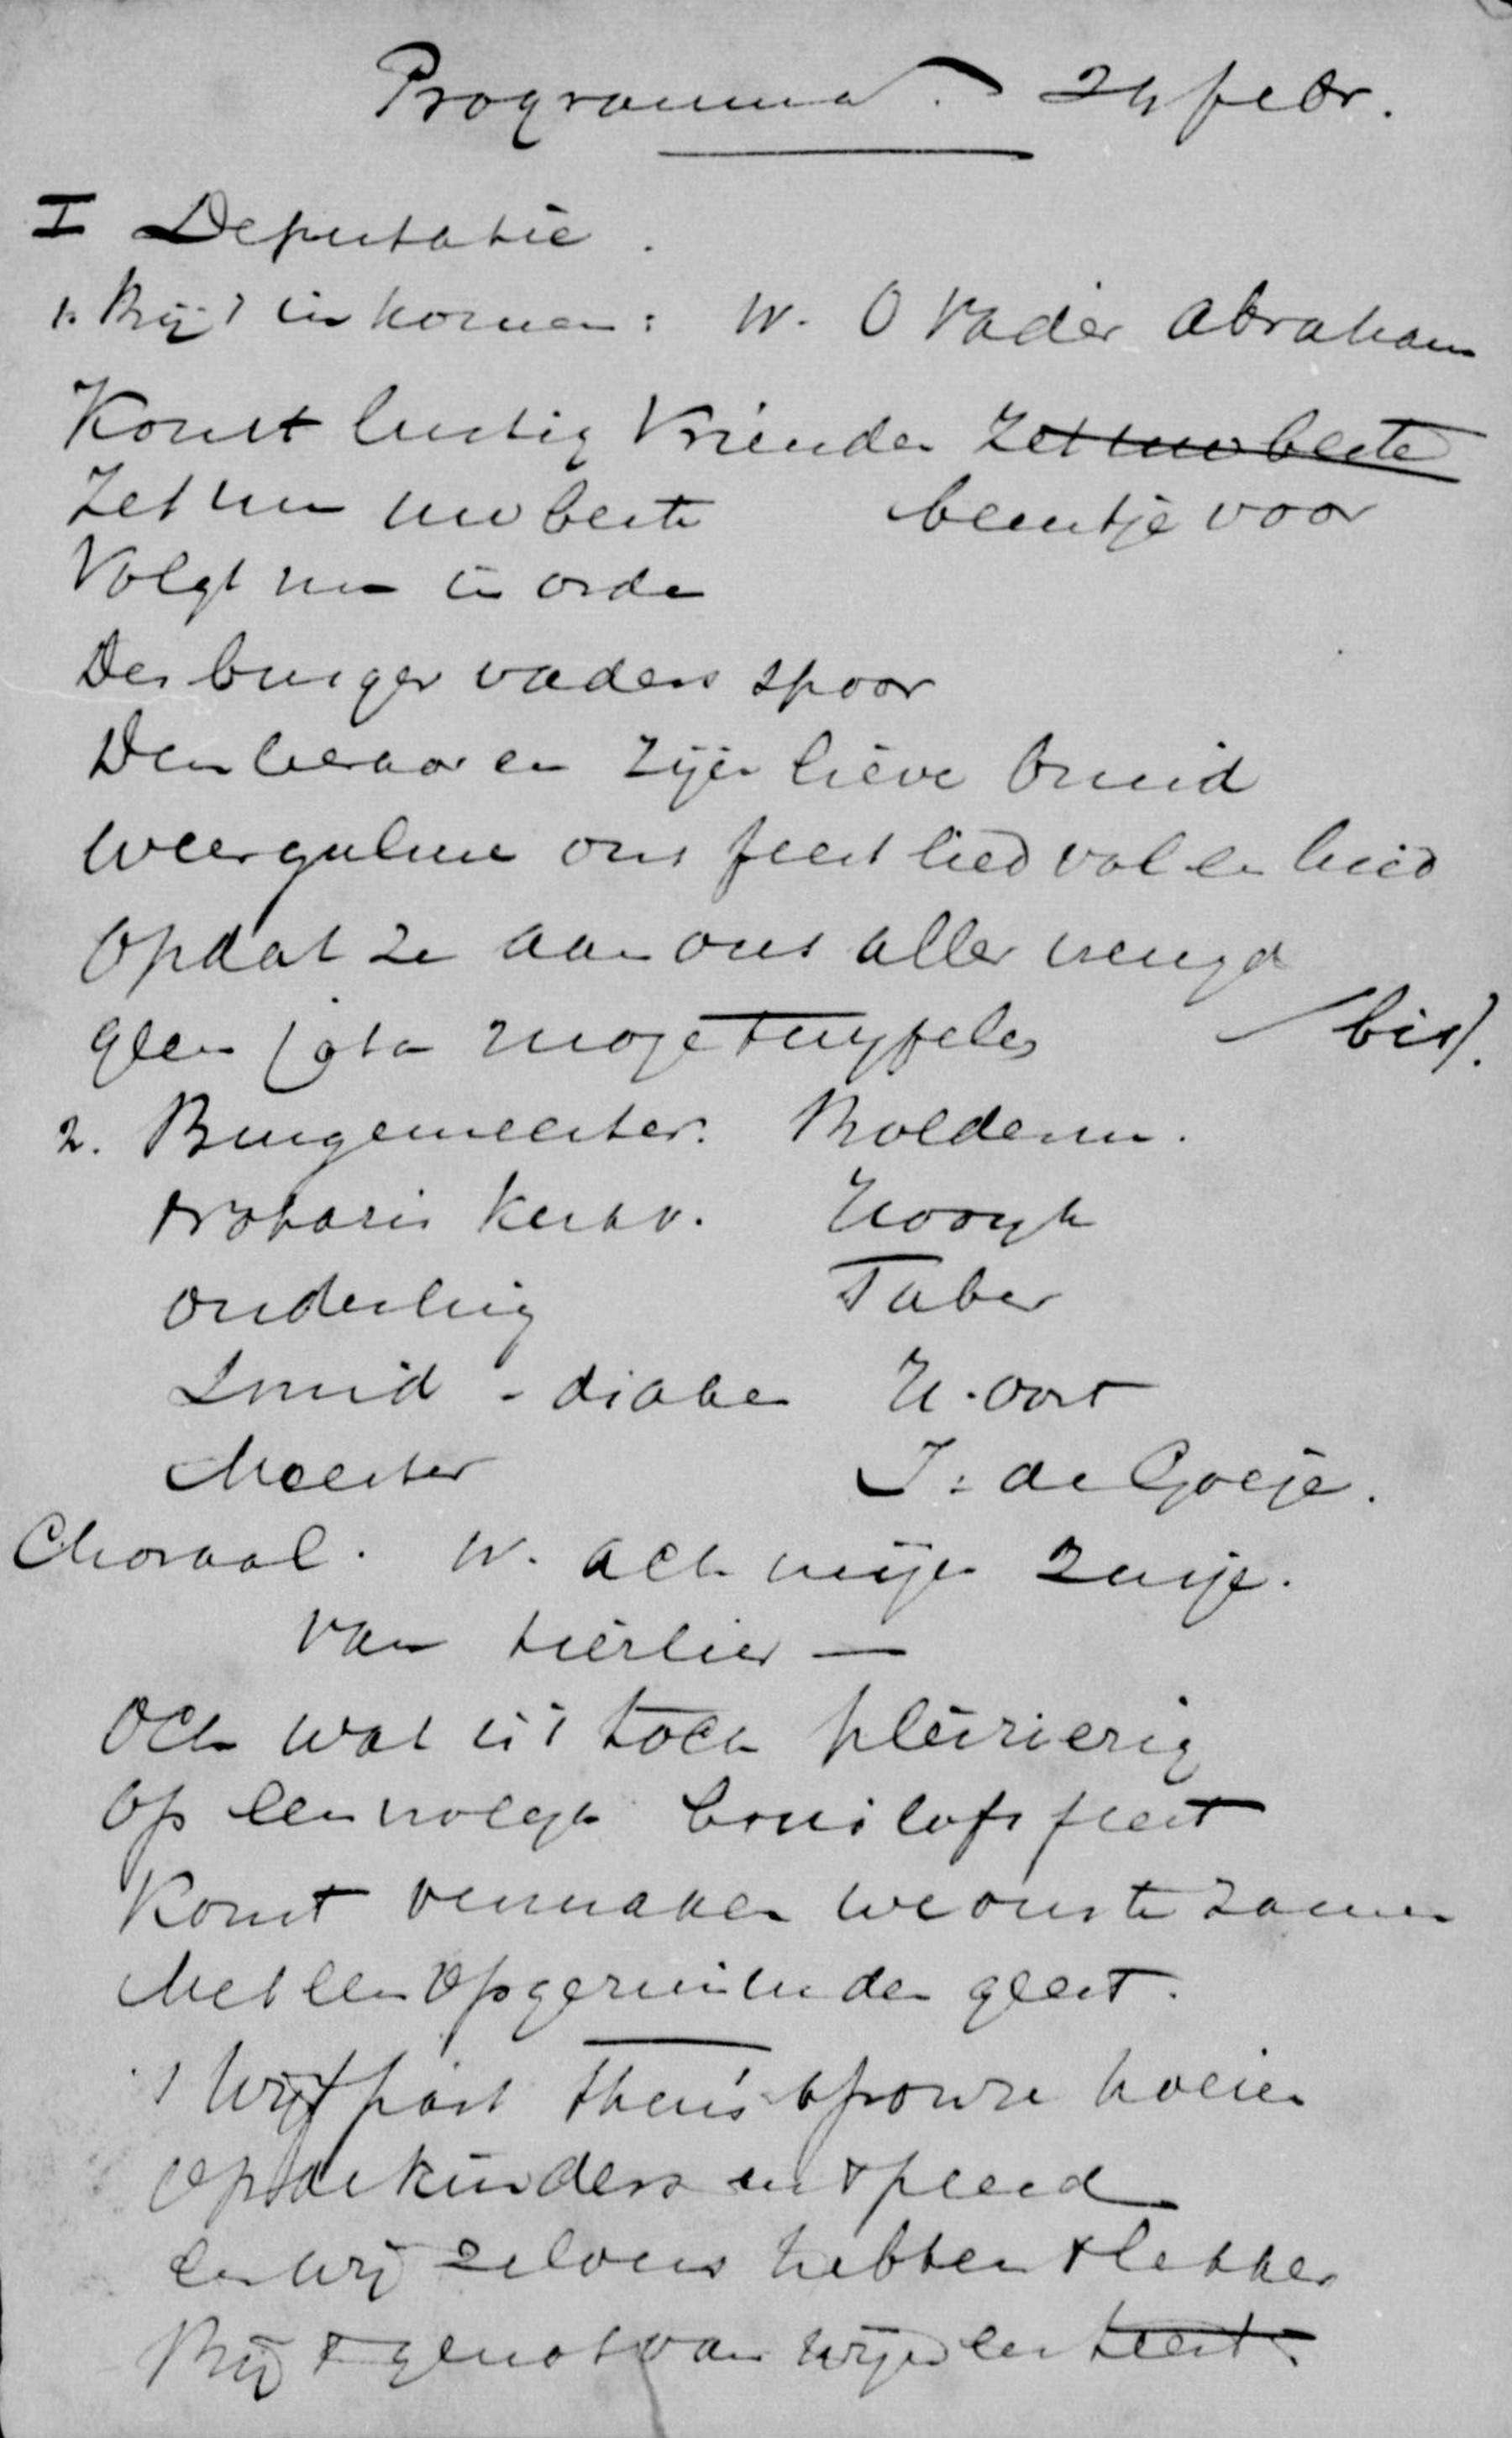 Programma. 24 febr.
I Deputatie.
1. Bij 't inkomen: W. O Vader Abraham
Komt lustig Vrienden Zet uw beste
Zet nu uw beste beentje voor
Volgt nu in orde
Des burgervaders spoor
Den leraar en zijn lieve bruid
Weergalme ons feestlied vol en luid
Opdat ze aan ons aller vreugd
geen jota moge twijfelen (bis).
2. Burgemeester. Molden.
Notaris Kerkv. Hoogh
Ouderling Taber
Smid - diaken H. Oort
Meester J. de Goeje.
Choraal. W. Ach mijn Zusje.
van tierlier —
Och wat is 't toch pleizierig
Op een vrolijk bruiloftsfeest
Komt vermaken we ons te zamen
Met een opgeruimden geest.
't Wijf past thuis op onze koeien
Op de kinders en 't speed
En wij zelvers hebben 't lekker
Bij 't genot van wijn en keest.